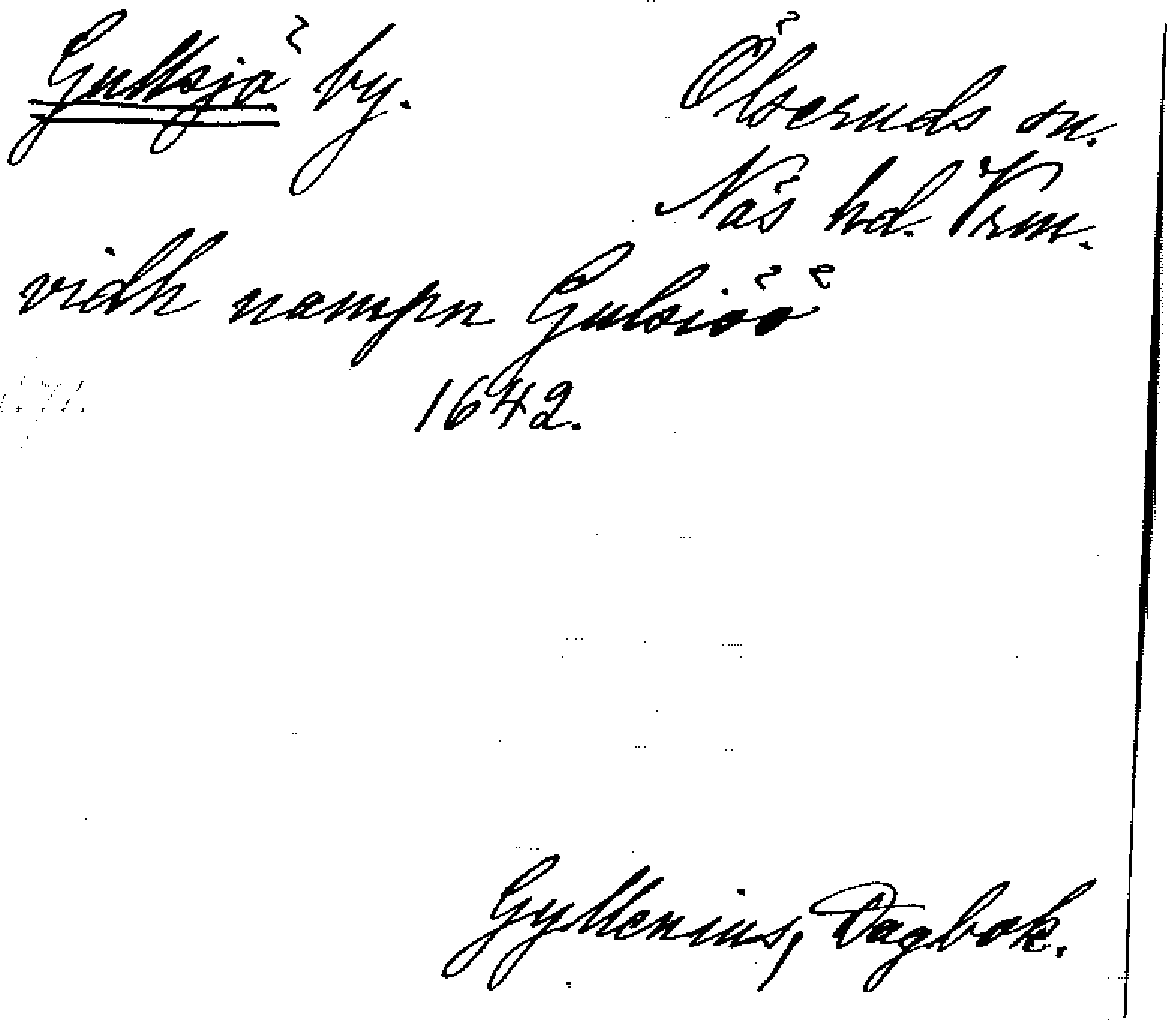 Gullsjö by.
Ölseruds sn.
Näs hd. Vrm.
vidh nampn Gulsiöö
1642.
Gyllenius, Dagbok.